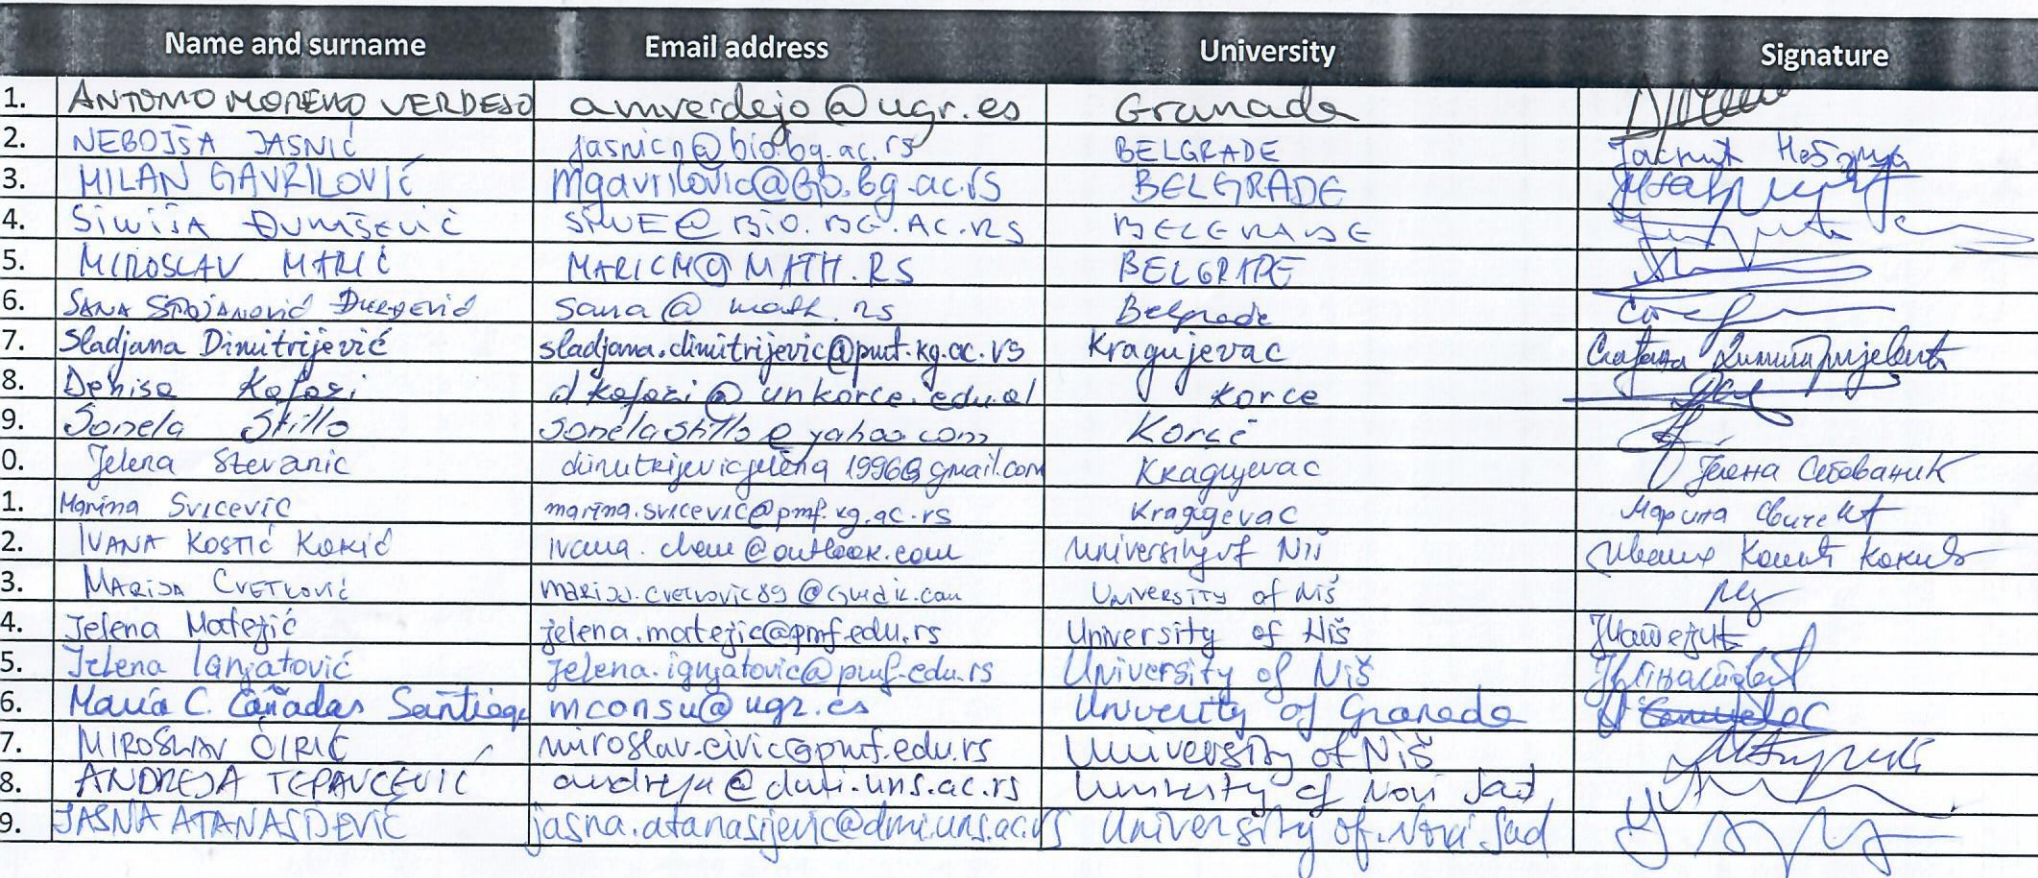 Name and surname Email address University Signature
1. ANTONIO MORENO VERDEJO amverdejo@ugr.es Granada
2. NEBOJŠA JASNIĆ jasnicn@bio.bg.ac.rs BELGRADE Јаснић Небојша
3. MILAN GAVRILOVIĆ mgavrilovic@bio.bg.ac.rs BELGRADE
4. SINIŠA ĐURAŠEVIĆ SINE@BIO.BG.AC.RS BELGRADE
5. MIROSLAV MARIĆ MARICM@MATH.RS BELGRADE
6. SANA STOJANOVIĆ ĐURĐEVIĆ sana@math.rs Belgrade
7. Sladjana Dimitrijević sladjana.dimitrijevic@pmf.kg.ac.rs Kragujevac Слађана Димитријевић
8. Denisa Kafazi dkafazi@unkorce.edu.al Korce
9. Sonela Stillo sonelastillo@yahoo.com Korcë
0. Jelena Stevanic dimitrijevicjelena1996@gmail.com Kragujevac Јелена Стеваник
1. Marina Svicevic marina.svicevic@pmf.kg.ac.rs Kragujevac Марина Свичевић
2. IVANA KOSTIĆ KOKIĆ ivana.chem@outlook.com University of Niš Ивана Костић Кокић
3. MARIJA CVETKOVIĆ University of Niš
4. Jelena Matejić jelena.matejic@pmf.edu.rs University of Niš ЈМатејић
5. Jelena Ignjatović jelena.ignjatovic@pmf.edu.rs University of Niš
6. María C. Cañadas Santiago mconsu@ugr.es University of Granada
7. MIROSLAV ĆIRIĆ miroslav.ciric@pmf.edu.rs University of Niš
8. ANDREJA TEPAVCEVIC andreja@dmi.uns.ac.rs University of Novi Sad
9. JASNA ATANASIJEVIĆ jasna.atanasijevic@dmi.uns.ac.rs University of Novi Sad